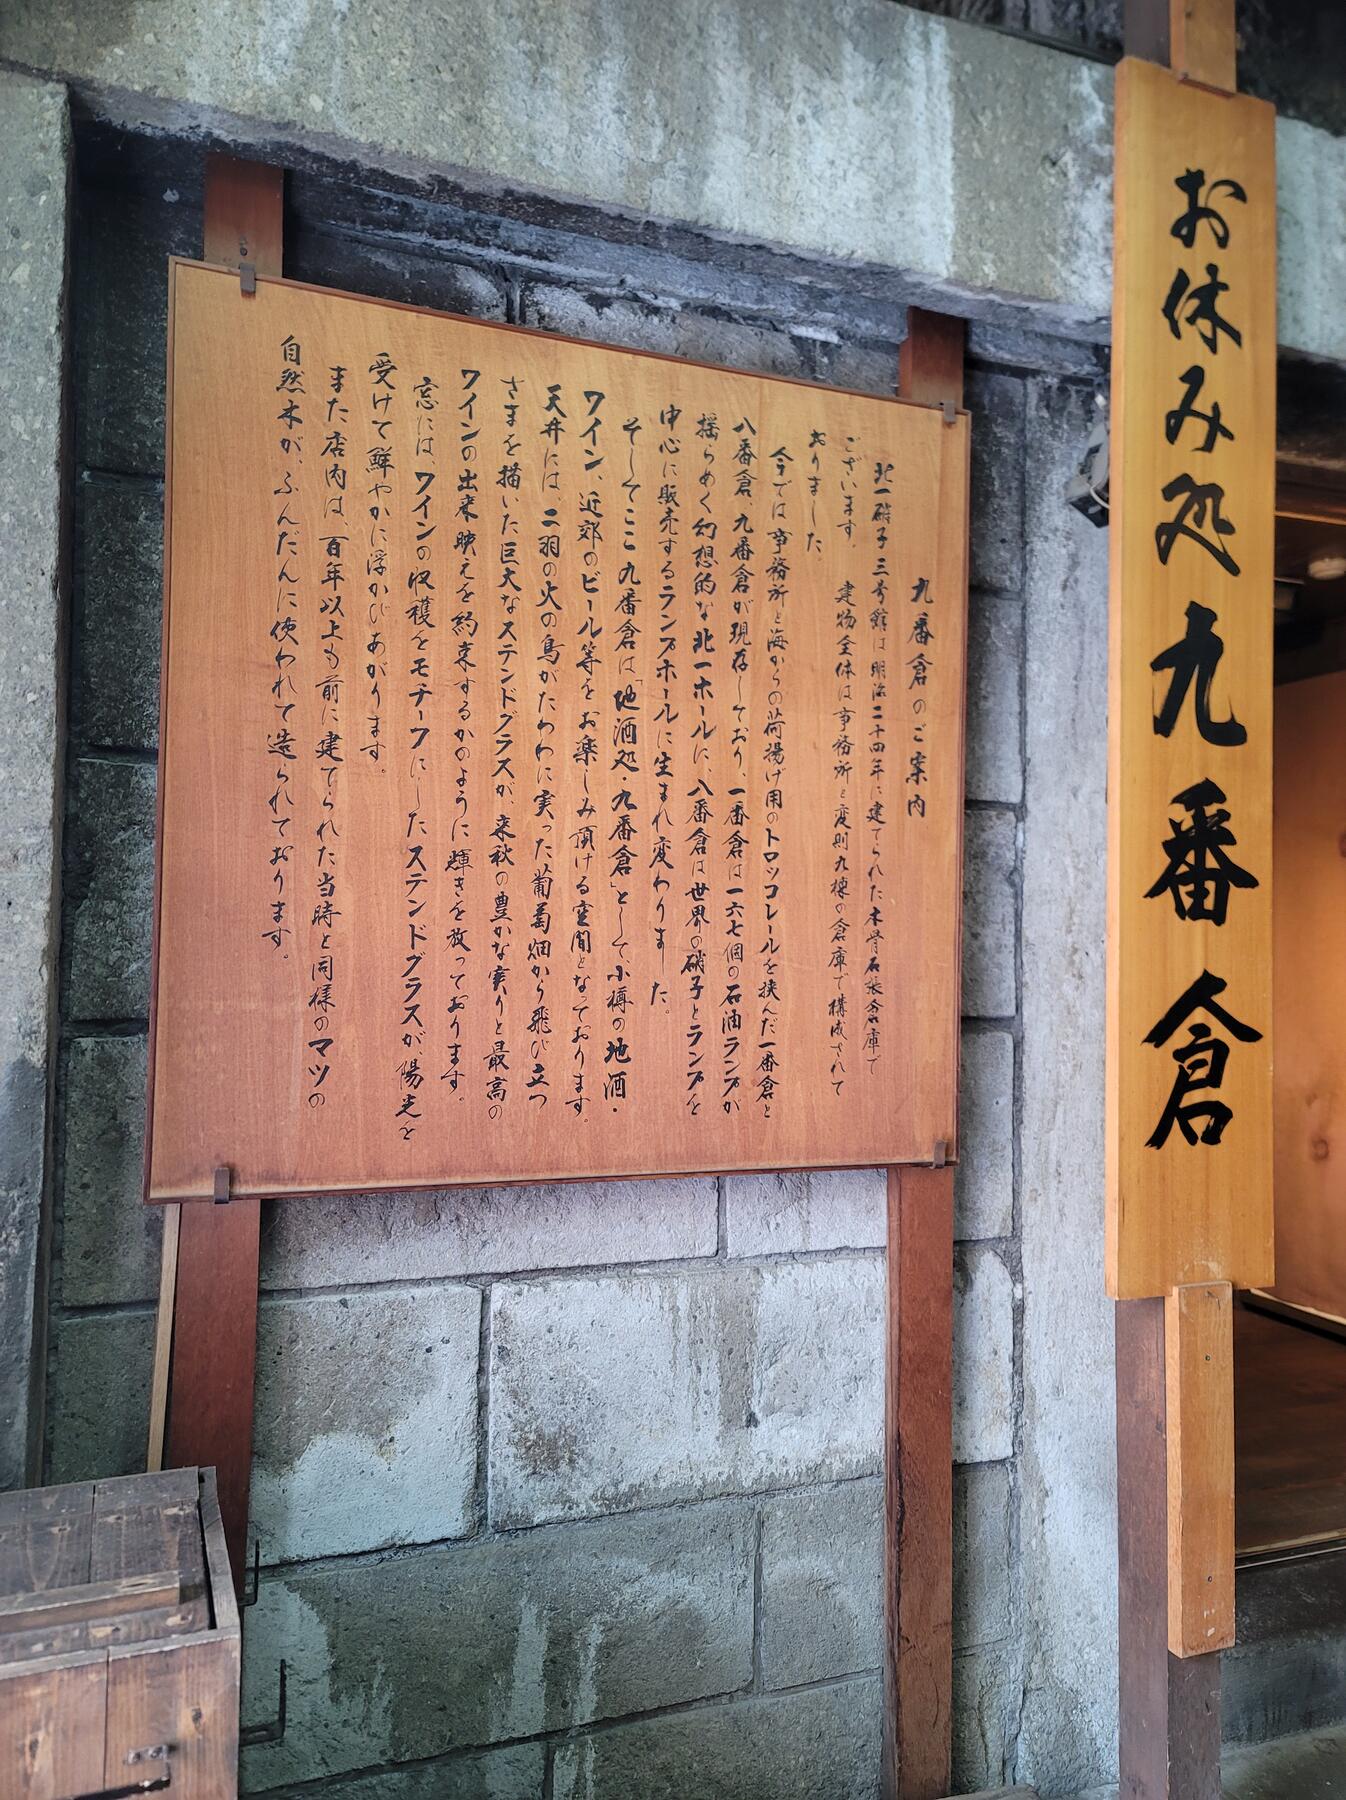 お休み処九番倉
九番倉のご案内
北一硝子三号館は明治二十四年に建てられた木骨石張倉庫で
ございます。 建物全体は事務所と変則九棟の倉庫で構成されて
おりました。
今では事務所と海からの荷揚げ用のトロッコレールを挟んだ一番倉と
八番倉、九番倉が現存しており、一番倉は一六七個の石油ランプが
揺らめく幻想的な北一ホールに、八番倉は世界の硝子とランプを
中心に販売するランプホールに生まれ変わりました。
そしてここ九番倉は「地酒処・九番倉」として、小樽の地酒・
ワイン、近郊のビール等をお楽しみ頂ける空間となっております。
天井には、二羽の火の鳥がたわわに実った葡萄畑から飛び立つ
さまを描いた巨大なステンドグラスが、来秋の豊かな実りと最高の
ワインの出来映えを約束するかのように輝きを放っております。
窓には、ワインの収穫をモチーフにしたステンドグラスが、陽光を
受けて鮮やかに浮かびあがります。
また店内は、百年以上も前に建てられた当時と同様のマツの
自然木が、ふんだんに使われて造られております。